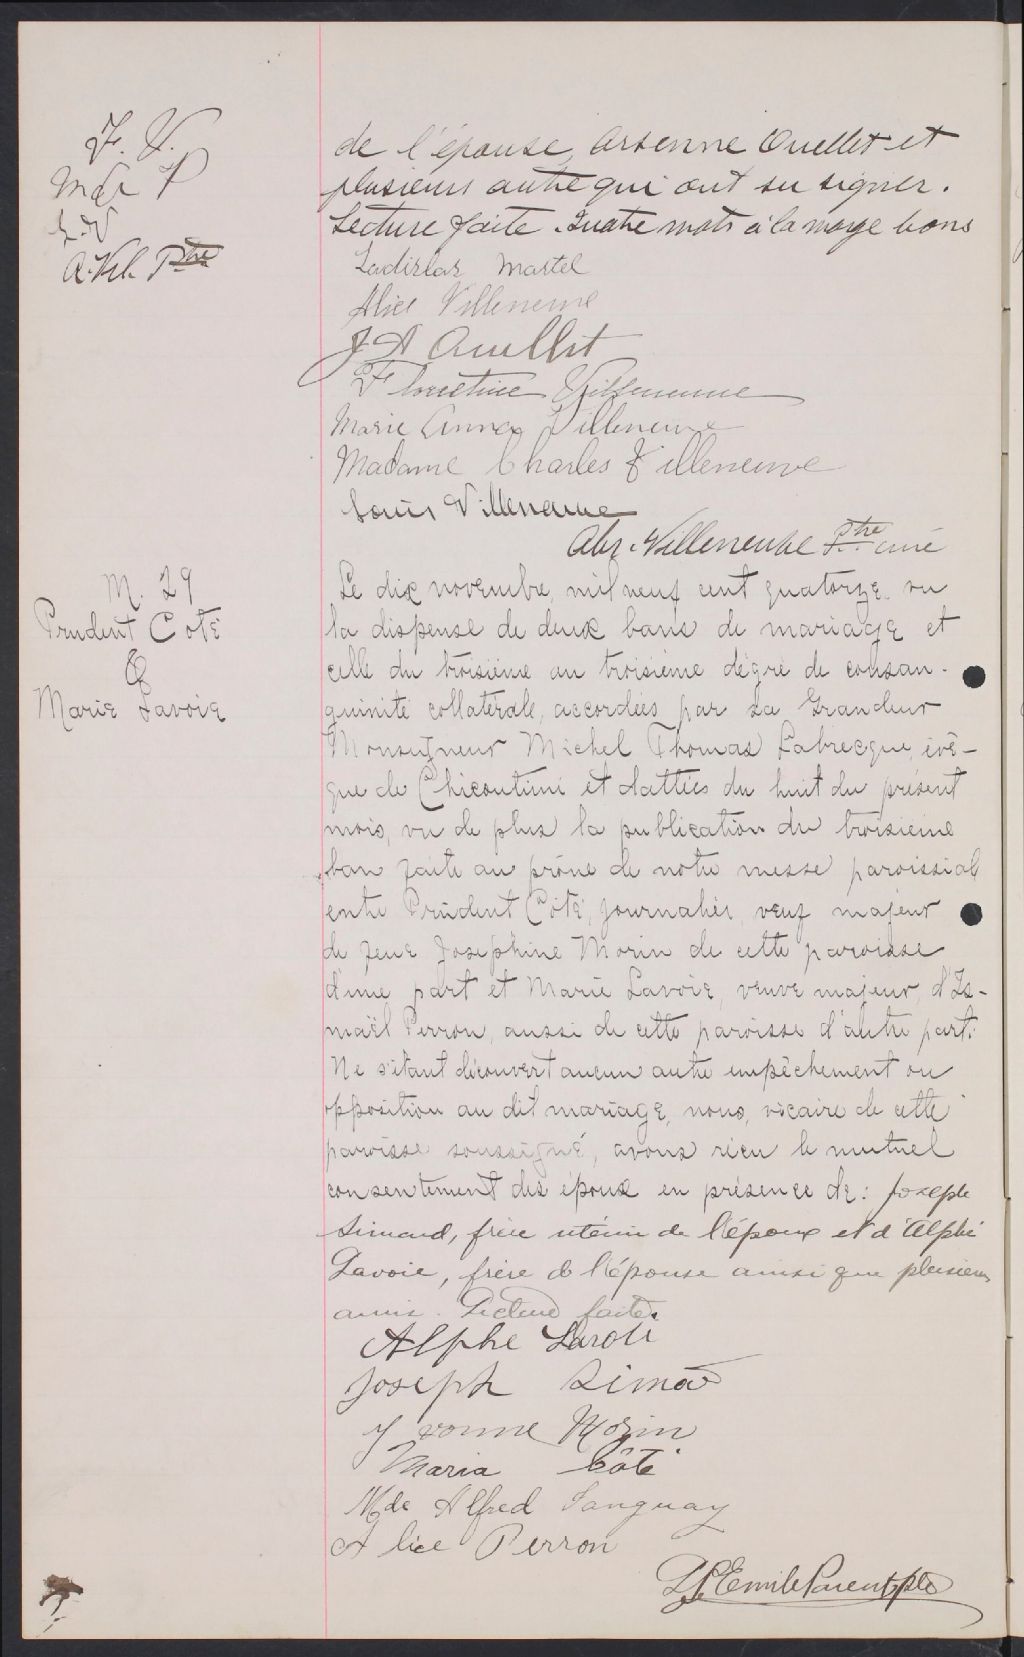 F. V.
L. V
A. Vil. Ptre
de l'épouse, Arsenne Ouellet et
plusieurs autre qui ont su signer.
Lecture faite. Quatre mots à la marge bons
Ladislas Martel
Alice Villeneuve
J A Ouellet
Florentine Villeneuve
Marie Anna Villeneuve
Madame Charles Villeneuve
Louis Villeneuve
Abr. Villeneuve Ptre curé
M. 29
Prudent Coté
&
Marie Lavoie
Le dix novembre, mil neuf cent quatorze, vu
la dispense de deux bans de mariage et
celle du troisième au troisième dégré de consan-
guinité collatérale, accordées par Sa Grandeur
Monseigneur Michel Thomas Labrecque, évê-
que de Chicoutimi et dattées du huit du présent
mois, vu de plus la publication du troisième
ban faite au prône de notre messe paroissial
entre Prudent Côté, journalier, veuf majeur
de feue Josephine Morin de cette paroisse
d'une part et Marie Lavoie, veuve majeur, d'Is-
maël Perron, aussi de cette paroisse d'autre part.
Ne s'étant découvert aucun autre empêchement ou
opposition au dit mariage, nous, vicaire de cette
paroisse soussigné, avons récu le mutuel
consentement des époux en présence de: Joseph
Simard, frère utérin de l'époux et d'Alphé
Lavoie, frère de l'épouse ainsi que plusieurs
amis. Lecture faite.
Alphe Lavoie
Joseph Simard
Yvonne Morin
Maria Côté
Mde Alfred Tanguay
Alice Perron
Emile Parent ptre